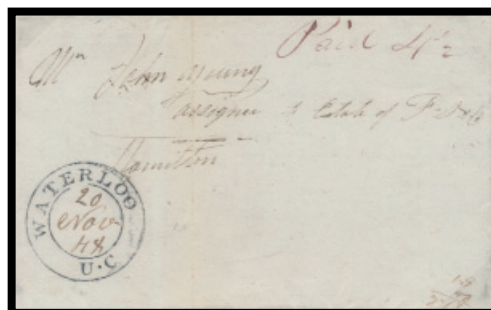 Paid 4½
Mr John Young
assignee to Estate of
Hamilton
WATERLOO
20
Nov
48
U.C